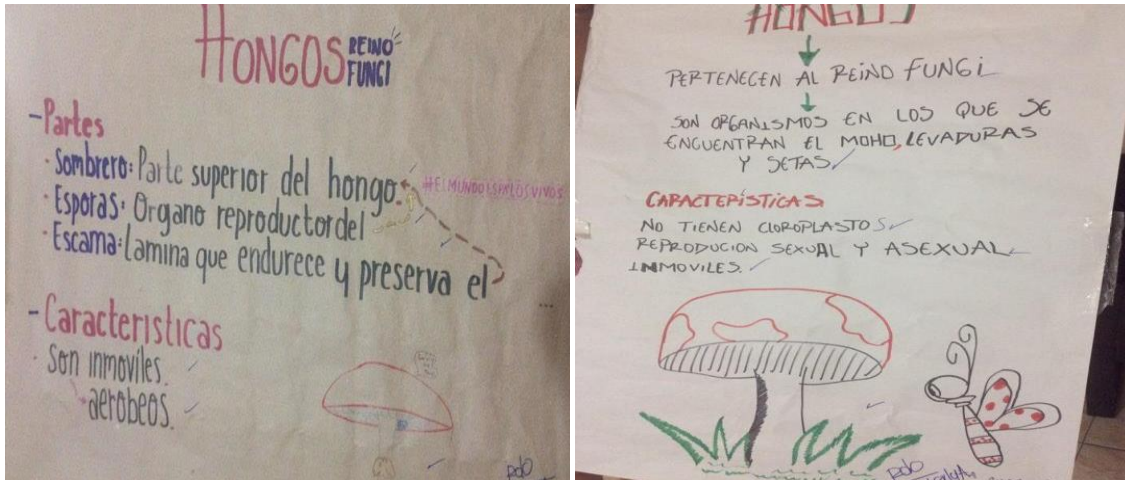 HONGOS REINO FUNGI
-Partes
· Sombrero: Parte superior del hongo.
#ELMUNDOESPALOSVIVOS
· Esporas: Organo reproductor del
· Escama: Lamina que endurece y preserva el
...
-Caracteristicas
· Son inmoviles.
aerobeos.
Rdo
HONGOS
PERTENECEN AL REINO FUNGI
SON ORGANISMOS EN LOS QUE SE
ENCUENTRAN EL MOHO, LEVADURAS
Y SETAS
CARACTERÍSTICAS
NO TIENEN CLOROPLASTOS
REPRODUCION SEXUAL Y ASEXUAL
INMOVILES.
Rdo